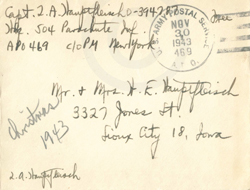 Capt. L. A. Hauptfleisch O-3947 Free
Hq. 504 Parachute Inf.
APO 469 c/o PM New York
U.S. ARMY POSTAL SERVICE
NOV
30
1943
469
A.P.O.
Mr. & Mrs. W. E. Hauptfleisch
3327 Jones St.
Sioux City 18, Iowa
Christmas
1943
L. A. Hauptfleisch